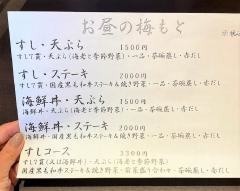 お昼の梅もと
すし・天ぷら 1500円
すし7貫・天ぷら(海老と季節野菜)・一品・茶碗蒸し・赤だし
すし・ステーキ 2000円
すし7貫・国産黒毛和牛ステーキ&焼き野菜・一品・茶碗蒸し・赤だし
海鮮丼・天ぷら 1500円
海鮮丼・天ぷら(海老と季節野菜)・一品・茶碗蒸し・赤だし
海鮮丼・ステーキ 2000円
海鮮丼・国産黒毛和牛ステーキ&焼き野菜・一品・茶碗蒸し・赤だし
すしコース 3300円
すし7貫(又は海鮮丼)・天ぷら(海老と季節野菜)
国産黒毛和牛ステーキ&焼き野菜・前菜盛り合わせ・茶碗蒸し・赤だし